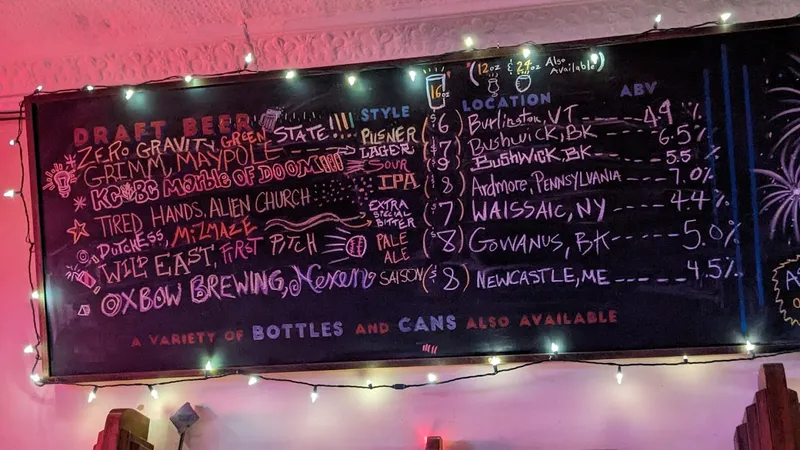 (12oz & 24oz Also Available)
16oz
DRAFT BEER STYLE LOCATION ABV
ZERO GRAVITY GREEN STATE!!! PILSNER ($6) Burlington, VT ---- 4.9%
GRIMM, MAYPOLE LAGER ($7) Bushwick, BK ---- 6.5%
KCBC MARBLE OF DOOM!!!! SOUR $9 BUSHWICK, BK ---- 5.5%
TIRED HANDS, ALIEN CHURCH IPA ($8) Ardmore, PENNSYLVANIA ---- 7.0%
DUTCHESS, MiLMAZE EXTRA SPECIAL BITTER ($7) WAISSAIC, NY ---- 4.4%
WILD EAST, FIRST PITCH PALE ALE ($8) GOWANUS, BK ---- 5.0%
OXBOW BREWING, Nexen SAISON ($8) NEWCASTLE, ME ---- 4.5%
A VARIETY OF BOTTLES AND CANS ALSO AVAILABLE